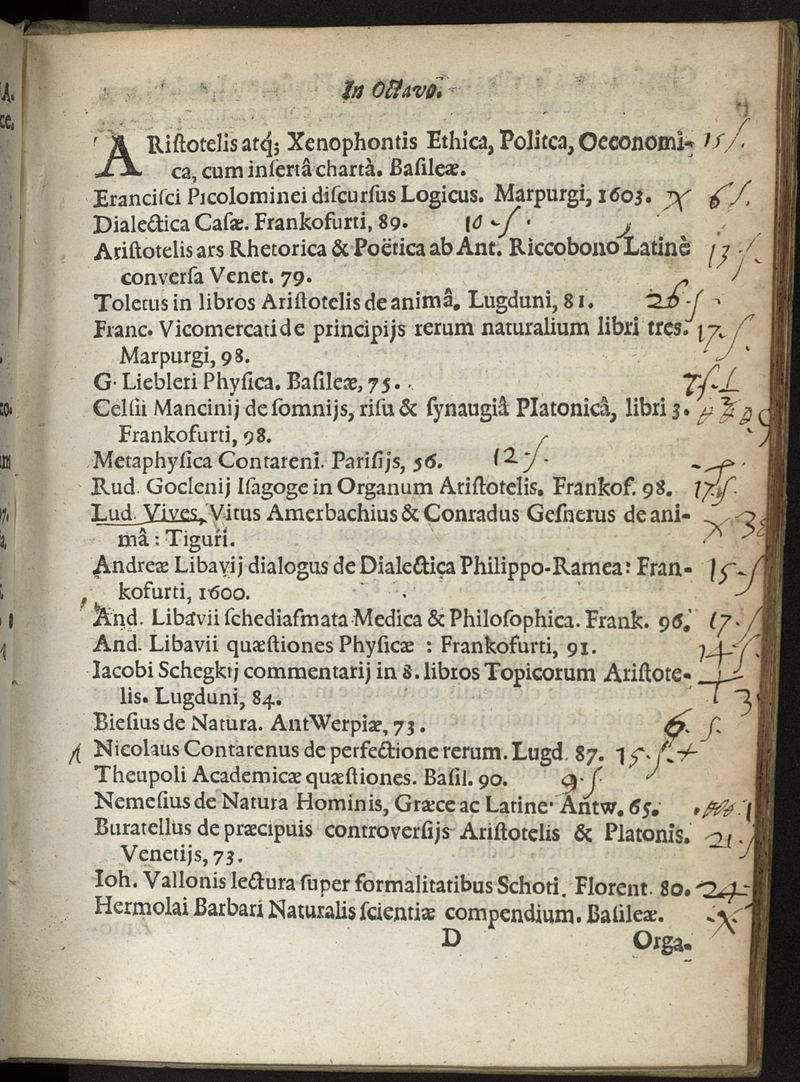 In Octavo.
ARiſtotelis atq; Xenophontis Ethica, Politca, Oeconomi- 15 ſ.
ca, cum inſertâ chartâ. Baſileæ.
Eranciſci Picolominei diſcurſus Logicus. Marpurgi, 1603. X 6 ſ.
Dialectica Caſæ. Frankofurti, 89. 10 ſ.
Ariſtotelis ars Rhetorica & Poëtica ab Ant. Riccobono Latinè 13 ſ
converſa Venet. 79.
Toletus in libros Ariſtotelis de animâ. Lugduni, 81. 26 ſ
Franc. Vicomercati de principijs rerum naturalium libri tres. 17 ſ
Marpurgi, 98.
G. Liebleri Phyſica. Baſileæ, 75.
Celſii Mancinij de ſomnijs, riſu & ſynaugiâ Platonicâ, libri 3.
Frankofurti, 98.
Metaphyſica Contareni. Pariſijs, 56. 12 ſ.
Rud. Goclenij Iſagoge in Organum Ariſtotelis. Frankof. 98. 17 ſ
Lud. Vives, Vitus Amerbachius & Conradus Geſnerus de ani-
mâ : Tiguri.
Andreæ Libavij dialogus de Dialectica Philippo-Ramea: Fran- 15 ſ
kofurti, 1600.
And. Libavii ſchediaſmata Medica & Philoſophica. Frank. 96. 17 ſ
And. Libavii quæſtiones Phyſicæ : Frankofurti, 91. 14 ſ
Iacobi Schegkij commentarij in 8. libros Topicorum Ariſtote-
lis. Lugduni, 84.
Bieſius de Natura. AntWerpiæ, 73. 6. ſ.
Nicolaus Contarenus de perfectione rerum. Lugd. 87. 15 ſ. +
Theupoli Academicæ quæſtiones. Baſil. 90. 9 ſ
Nemeſius de Natura Hominis, Græce ac Latine. Antw. 65.
Buratellus de præcipuis controverſijs Ariſtotelis & Platonis. 21 ſ
Venetijs, 73.
Ioh. Vallonis lectura ſuper formalitatibus Schoti. Florent. 80. 24
Hermolai Barbari Naturalis ſcientiæ compendium. Baſileæ. X
D Orga-